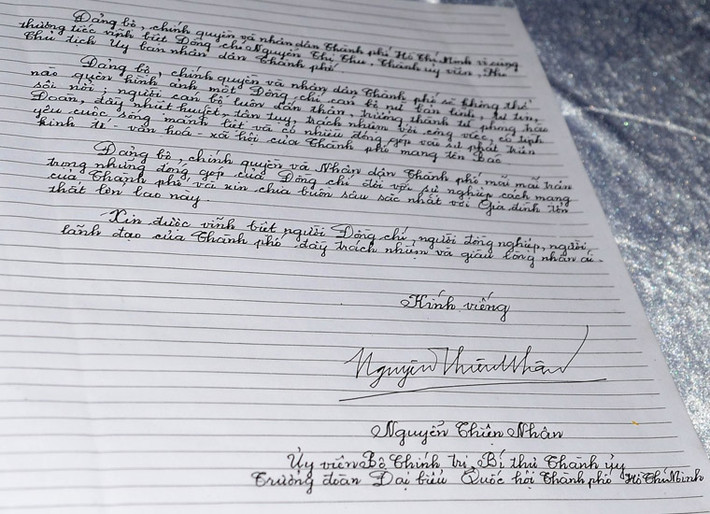 Đảng bộ, chính quyền và nhân dân Thành phố Hồ Chí Minh vô cùng
thương tiếc vĩnh biệt Đồng chí Nguyễn Thị Thu, Thành ủy viên, Phó
Chủ tịch Ủy ban nhân dân Thành phố.
Đảng bộ, chính quyền và nhân dân Thành phố sẽ không thể
nào quên hình ảnh một Đồng chí cán bộ nữ tận tình, tự tin,
sôi nổi; người cán bộ luôn dấn thân, trưởng thành từ phong trào
Đoàn, đầy nhiệt huyết, tận tụy, trách nhiệm với công việc, có tình
yêu cuộc sống mãnh liệt và có nhiều đóng góp vào sự phát triển
kinh tế - văn hoá - xã hội của Thành phố mang tên Bác.
Đảng bộ, chính quyền và Nhân dân Thành phố mãi mãi trân
trọng những đóng góp của Đồng chí đối với sự nghiệp cách mạng
của Thành phố và xin chia buồn sâu sắc nhất với Gia đình tổn
thất lớn lao này.
Xin được vĩnh biệt người Đồng chí, người đồng nghiệp, người
lãnh đạo của Thành phố đầy trách nhiệm và giàu lòng nhân ái.
Kính viếng
Nguyễn Thiện Nhân
Nguyễn Thiện Nhân
Ủy viên Bộ Chính trị, Bí thư Thành ủy
Trưởng đoàn Đại biểu Quốc hội Thành phố Hồ Chí Minh